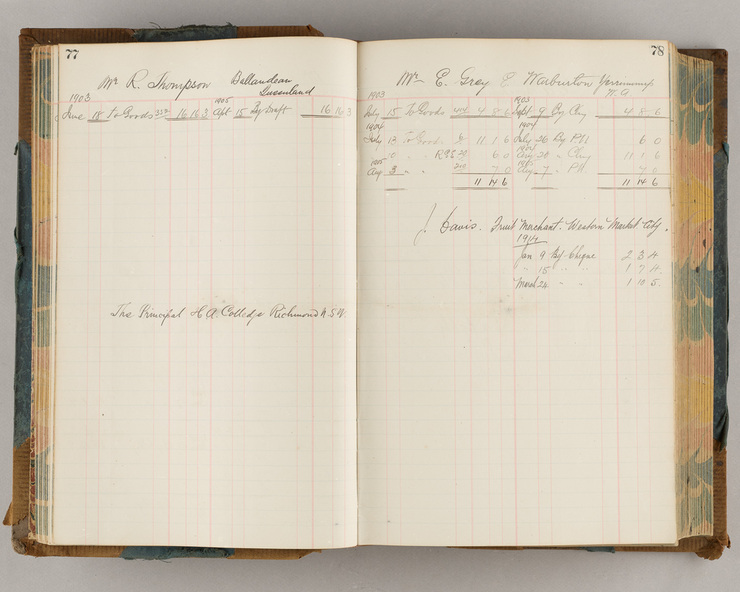 77
Mr R. Thompson Ballandean
Queensland
1903 1905
June 18 To Goods 16 16 3 Apl 15 By Draft 16 16 3
The Principal H A. College Richmond N.S.W
78
Mr E. Grey & Warburton
W. A
1903 1903
July 15 To Goods 4 8 6 Sept 9 By Chq 4 8 6
1904 1904
July 13 To Goods 11 1 6 July 26 By PN 6 0
6 0 Aug 28 " Chq 11 1 6
1905 1905
Aug 3 " " 7 0 Aug 7 " PN 7 0
11 14 6 11 14 6
J. Davis. Fruit Merchant. Western Market City.
Jan 9 By Cheque 2 3 4
" 15 " " 1 7 4
March 24 " " 1 10 5